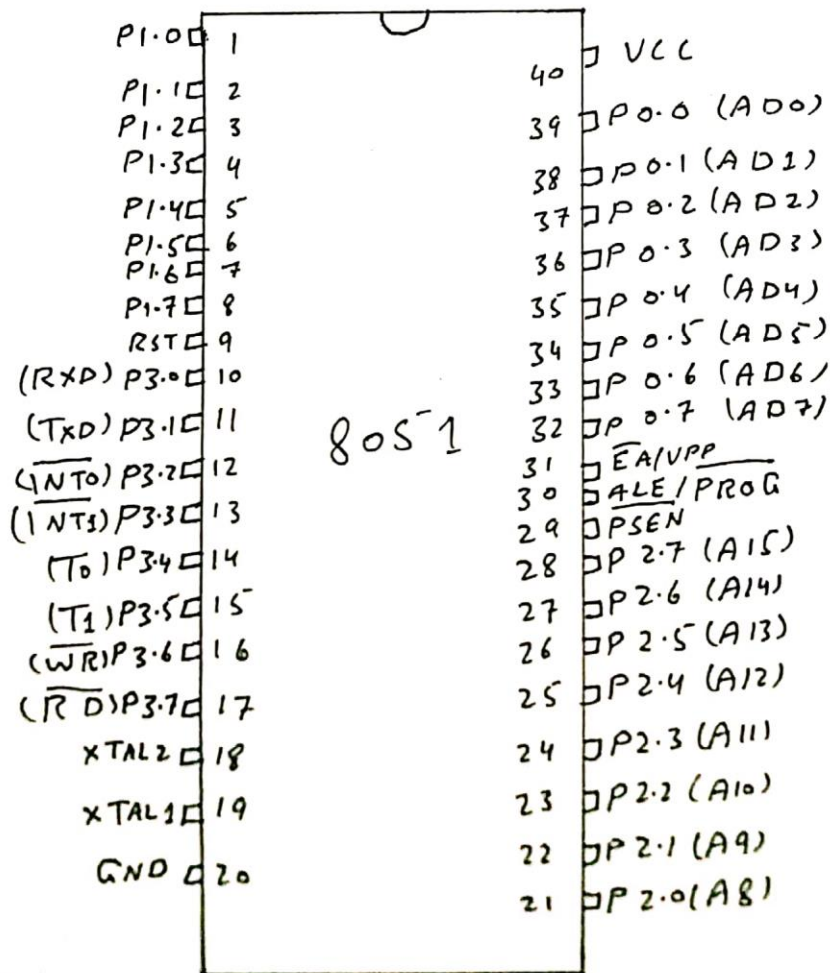 P1.0 1
P1.1 2
P1.2 3
P1.3 4
P1.4 5
P1.5 6
P1.6 7
P1.7 8
RST 9
(RXD) P3.0 10
(TXD) P3.1 11
(I̅N̅T̅0̅) P3.2 12
(I̅N̅T̅1̅) P3.3 13
(T0) P3.4 14
(T1) P3.5 15
(W̅R̅) P3.6 16
(R̅D̅) P3.7 17
XTAL2 18
XTAL1 19
GND 20
8051
40 VCC
39 P0.0 (AD0)
38 P0.1 (AD1)
37 P0.2 (AD2)
36 P0.3 (AD3)
35 P0.4 (AD4)
34 P0.5 (AD5)
33 P0.6 (AD6)
32 P0.7 (AD7)
31 E̅A̅/VPP
30 ALE/P̅R̅O̅G̅
29 P̅S̅E̅N̅
28 P2.7 (A15)
27 P2.6 (A14)
26 P2.5 (A13)
25 P2.4 (A12)
24 P2.3 (A11)
23 P2.2 (A10)
22 P2.1 (A9)
21 P2.0 (A8)